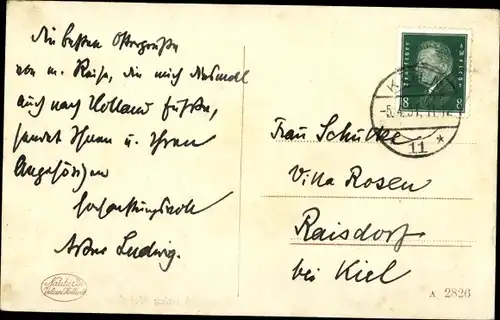 Die besten Ostergrüße
von m. Reise, die mich diesmal
auch nach Holland führte,
sendet Ihnen u. Ihren
Angehörigen
hochachtungsvoll
Ludwig.
Frau Schulke
Villa Rosen
Raisdorf
bei Kiel
8 8
-5.4.31. 11-12
11 *
A 2826